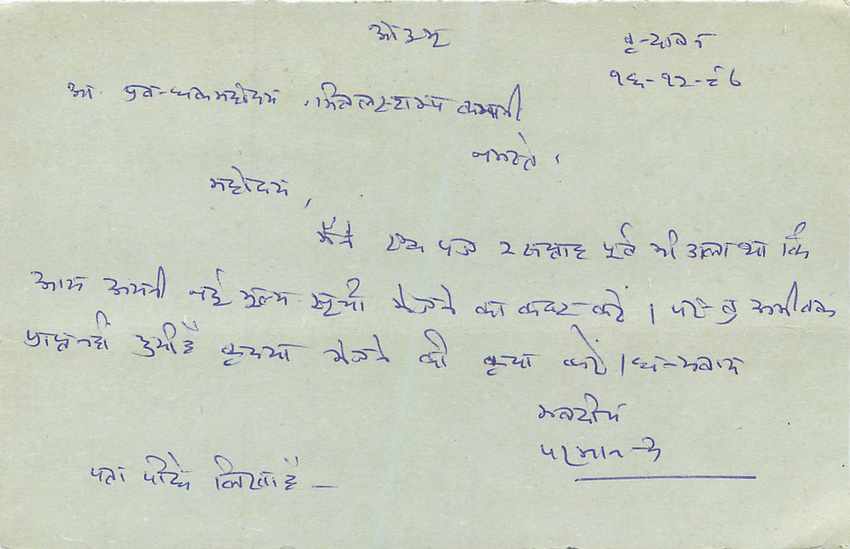 ओ३म्
वृन्दावन
१६-१२-८६
आ. प्रबन्धक महोदय,
नमस्ते,
महोदय,
मैंने एक पत्र २ सप्ताह पूर्व भी डाला था कि
आप अपनी नई मूल्य सूची भेजने का कष्ट करें । परन्तु अभी तक
प्राप्त नहीं हुयी है कृपया भेजने की कृपा करें । धन्यवाद
भवदीय
परमानन्द
पता पीछे लिखा है —